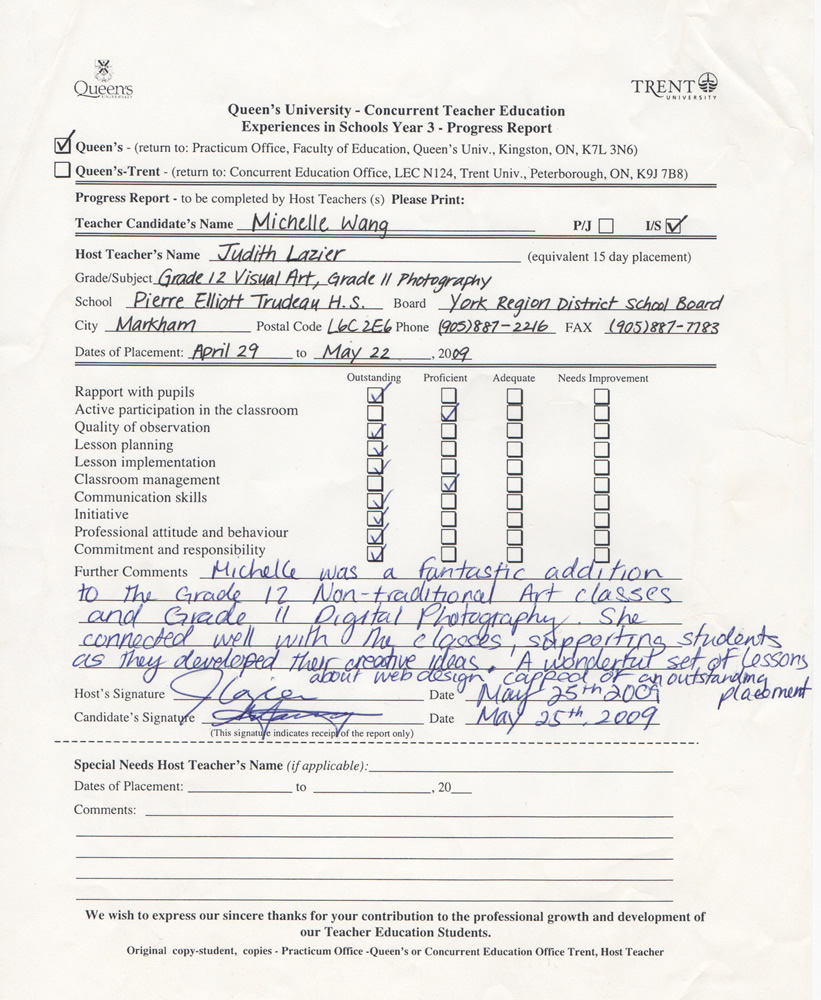 Queen's
UNIVERSITY
TRENT
UNIVERSITY
Queen's University - Concurrent Teacher Education
Experiences in Schools Year 3 - Progress Report
Queen's - (return to: Practicum Office, Faculty of Education, Queen's Univ., Kingston, ON, K7L 3N6)
Queen's-Trent - (return to: Concurrent Education Office, LEC N124, Trent Univ., Peterborough, ON, K9J 7B8)
Progress Report - to be completed by Host Teachers (s) Please Print:
Teacher Candidate's Name Michelle Wang P/J I/S
Host Teacher's Name Judith Lazier (equivalent 15 day placement)
Grade/Subject Grade 12 Visual Art, Grade 11 Photography
School Pierre Elliott Trudeau H.S. Board York Region District School Board
City Markham Postal Code L6C 2E6 Phone (905)887-2216 FAX (905)887-7783
Dates of Placement: April 29 to May 22, 2009
Outstanding Proficient Adequate Needs Improvement
Rapport with pupils
Active participation in the classroom
Quality of observation
Lesson planning
Lesson implementation
Classroom management
Communication skills
Initiative
Professional attitude and behaviour
Commitment and responsibility
Further Comments Michelle was a fantastic addition
to the Grade 12 Non-traditional Art classes
and Grade 11 Digital Photography. She
connected well with the classes, supporting students
as they developed their creative ideas. A wonderful set of lessons
about web design, capped off an outstanding
placement
Host's Signature JLazier Date May 25th 2009
Candidate's Signature Date May 25th, 2009
(This signature indicates receipt of the report only)
Special Needs Host Teacher's Name (if applicable):
Dates of Placement: to , 20
Comments:
We wish to express our sincere thanks for your contribution to the professional growth and development of
our Teacher Education Students.
Original copy-student, copies - Practicum Office -Queen's or Concurrent Education Office Trent, Host Teacher